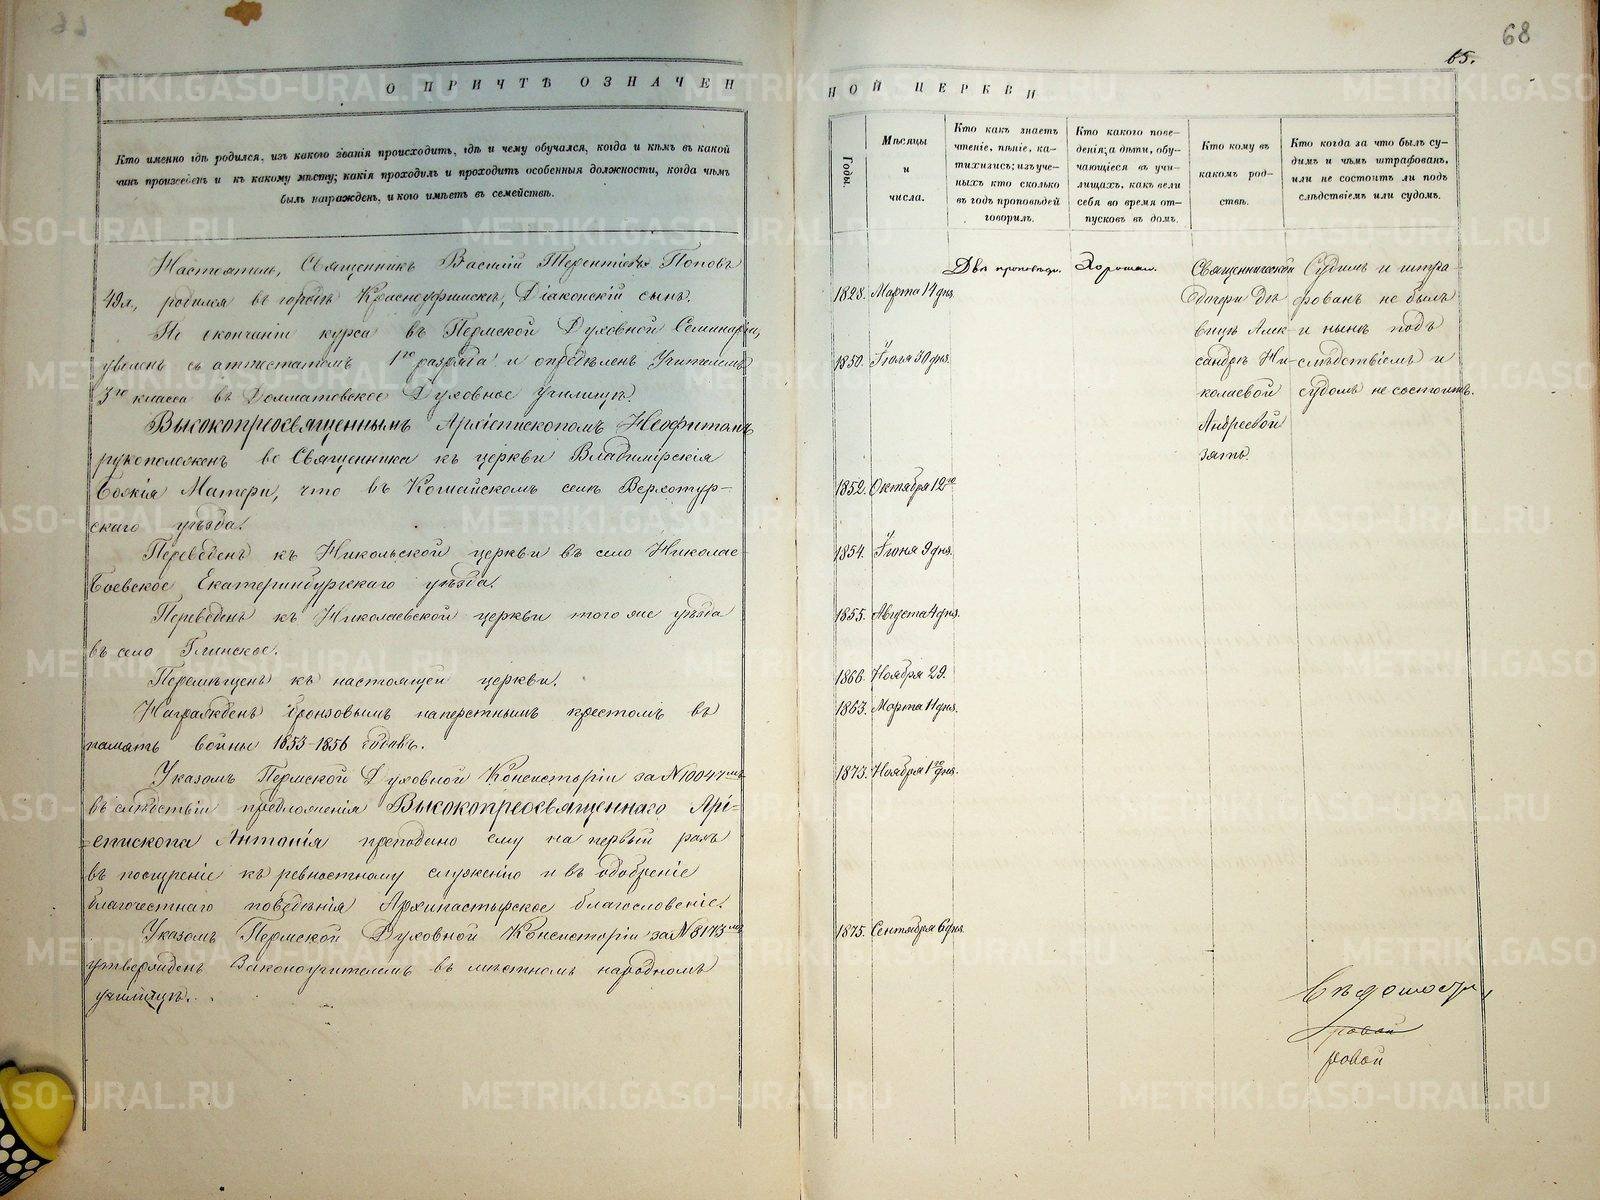 68
65.
О ПРИЧТѢ ОЗНАЧЕН
НОЙ ЦЕРКВИ
Кто именно гдѣ родился, изъ какого званія происходитъ, гдѣ и чему обучался, когда и кѣмъ въ какой
чинъ произведенъ и къ какому мѣсту; какія проходилъ и проходитъ особенныя должности, когда чѣмъ
былъ награжденъ, и кого имѣетъ въ семействѣ.
Настоятель, Священникъ Василій Терентіевъ Поповъ
49 л., родился въ городѣ Красноуфимскѣ, Діаконскій сынъ.
По окончаніи курса въ Пермской Духовной Семинаріи,
уволенъ съ аттестатомъ 1го разряда и опредѣленъ Учителемъ
3го класса въ Долматовское Духовное училище.
Высокопреосвященнымъ Архіепископомъ Неофитомъ
рукоположенъ во Священника къ церкви Владимірскія
Божія Матери, что въ Кошайскомъ селѣ Верхотур-
скаго уѣзда.
Переведенъ къ Никольской церкви въ село Николае-
боевское Екатеринбургскаго уѣзда.
Переведенъ къ Николаевской церкви того же уѣзда
въ село Глинское.
Перемѣщенъ къ настоящей церкви.
Награжденъ бронзовымъ наперстнымъ крестомъ въ
память войны 1853-1856 годовъ.
Указомъ Пермской Духовной Консисторіи за № 10047мъ
въ слѣдствіи предложенія Высокопреосвященнаго Архі-
епископа Антонія преподано ему на первый разъ
въ поощреніе къ ревностному служенію и въ одобреніе
благочестнаго поведѣнія Архипастырское благословеніе.
Указомъ Пермской Духовной Консисторіи за № 8173мъ
утвержденъ Законоучителемъ въ мѣстномъ народномъ
училищѣ.
Годы.
Мѣсяцы
и
числа.
1828. Марта 14 дня.
1850. Іюля 30 дня.
1852. Октября 12го
1854. Іюня 9 дня.
1855. Августа 4 дня.
1866. Ноября 29.
1863. Марта 11 дня.
1873. Ноября 1го дня.
1875. Сентября 6 дня.
Кто какъ знаетъ
чтеніе, пѣніе, ка-
тихизисъ; изъ уче-
ныхъ кто сколько
въ годъ проповѣдей
говорилъ.
Двѣ проповѣди.
Кто какого пове-
денія; а дѣти, обу-
чающіеся въ учи-
лищахъ, какъ вели
себя во время от-
пусковъ въ домъ.
Хорошаго.
Кто кому въ
какомъ род-
ствѣ.
Священнической
дочери дѣ
вицѣ Алек-
сандрѣ Ни-
колаевой
Андреевой
зять.
Кто когда за что былъ су-
димъ и чѣмъ штрафованъ,
или не состоитъ ли подъ
слѣдствіемъ или судомъ.
Судимъ и штра-
фованъ не былъ
и нынѣ подъ
слѣдствіемъ и
судомъ не состоитъ.
ровой
METRIKI.GASO-URAL.RU